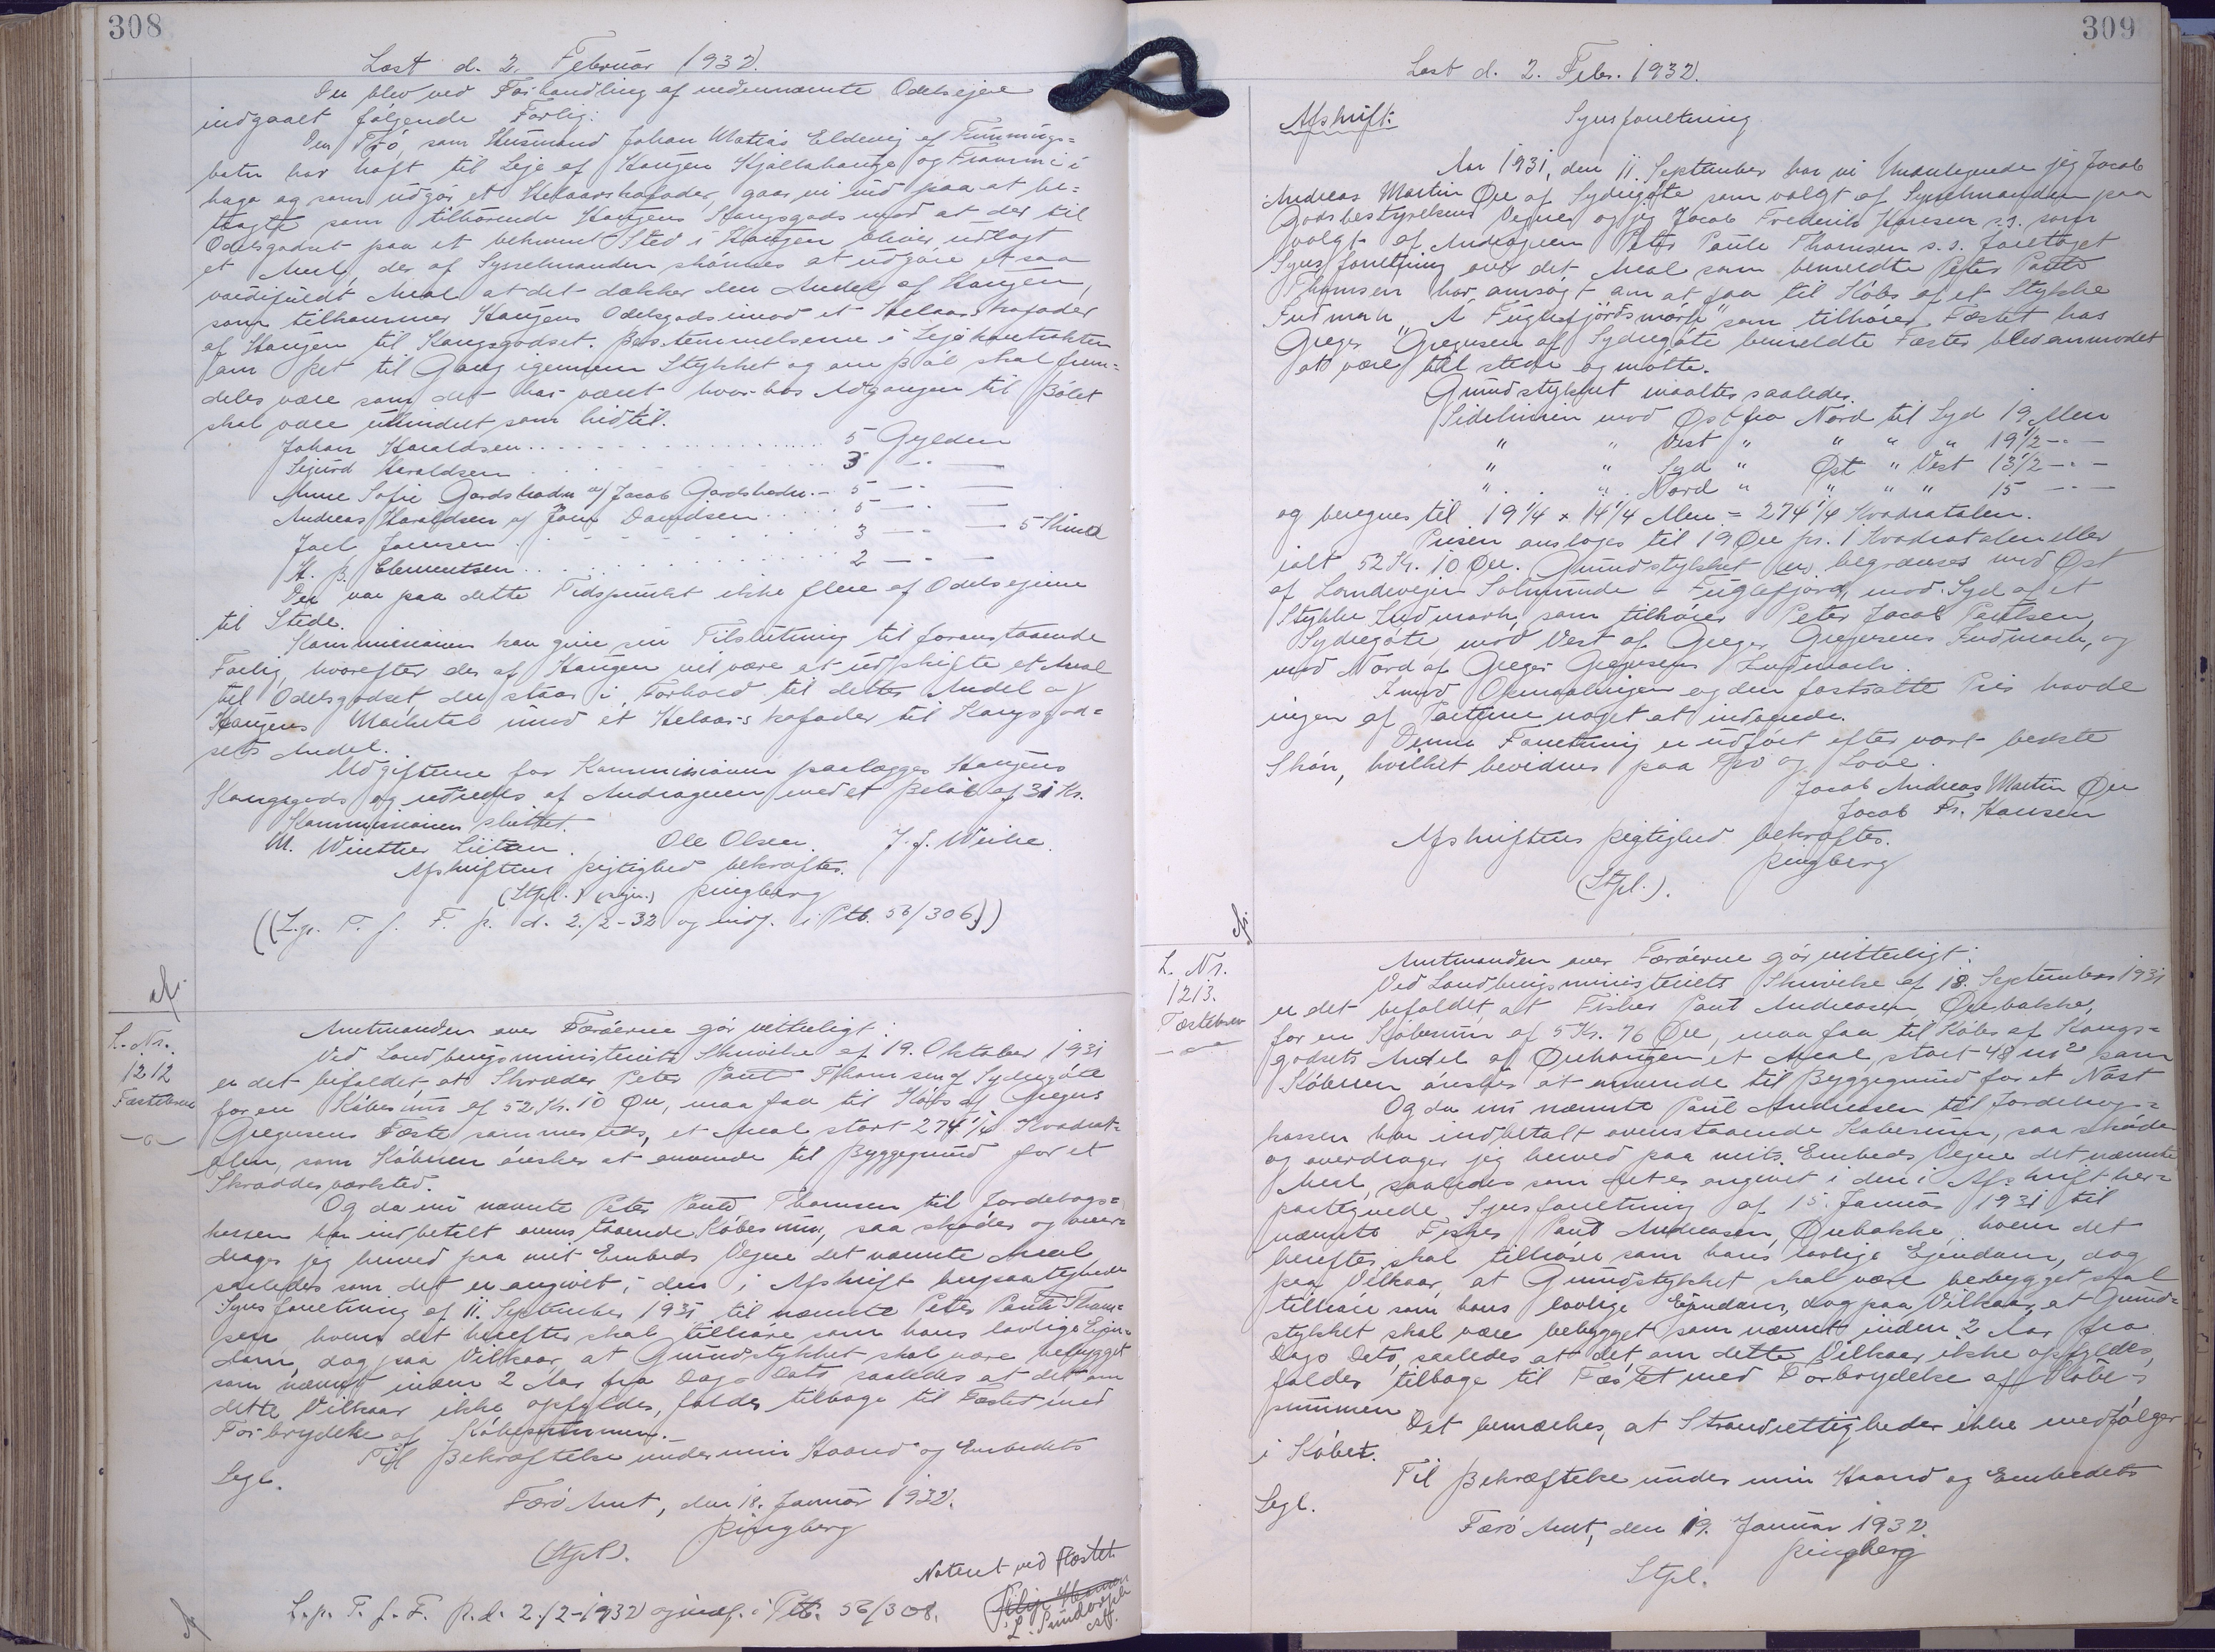 308
Læst d. 2. Februar 1932.
Der blev ved Forhandling af nedennævnte Odelsejere
indgaaet følgende Forlig:
Den Trö, som Husmand Johan Matias Eldevig af Funnings-
botn har haft til Leje af Haugen Hjallahauge og Frammi i
haga og som udgør et Helaarskofoder, gaar vi ind paa at be-
tragte som tilhörende Haugens Kongsgods mod at der til
Odelsgodset paa et bekvemt Sted i Haugen bliver udlagt
et Areal, der af Sysselmanden skønnes at udgøre et saa
værdifuldt Areal at det dækker den Andel af Haugen,
som tilkommer Haugens Odelsgods imod et Helaarskofoder
af Haugen til Kongsgodset. Bestemmelserne i Lejekontrakten
om Ret til Gang igennem Stykket og om Ból skal frem-
deles være som det har været hvor hos Adgangen til Bólet
skal være uhindret som hidtil.
Johan Haraldsen . . . 5 Gylden
Sigurd Haraldsen . . . 3 —
Anne Sofie Gardshodn af Jacob Gardshodn . - 5 —
Andreas Haraldsen af Jóan Davidsen . . . 5 —
Joel Joensen . . . 3 — 5 Skind
H. P. Clementsen . . . 2 —
Der var paa dette Tidspunkt ikke flere af Odelsejerne
til Stede.
Kommissionen kan give sin Tilslutning til foranstaaende
Forlig, hvorefter der af Haugen vil være at udskifte et Areal
til Odelsgodset, der staar i Forhold til dettes Andel af
Haugens Marketal imod et Helaarskofoder til Kongsgod-
sets Andel.
Udgifterne for Kommissionen paalægges Haugens
Kongsgods og udredes af Andrageren med et Beløb af 31 Kr.
Kommissionen sluttet.
M. Winther Lützen. Ole Olsen. J. J. Weihe.
Afskriftens Rigtighed bekræftes.
(Stpl.) (sign.) Ringberg
((L.p. T. f. F. R. d. 2/2-32 og indf. i Ptb. 56/306))
afs.
L. Nr.
1212
Fæstebrev
Amtmanden over Færøerne gør vitterligt:
Ved Landbrugsministeriets Skrivelse af 19. Oktober 1931
er det bifaldet, at Skræder Peter Paul Thomsen af Sydregöte
for en Købesum af 52 Kr. 10 Øre, maa faa til Købs af Gregers
Gregersens Fæste sammesteds, et Areal stort 274 1/4 Kvadrat-
alen, som Køberen ønsker at anvende til Byggegrund for et
Skrædderværksted.
Og da nu nævnte Peter Paul Thomsen til Jordebogs-
kassen har indbetalt ovenstaaende Købesum, saa skøder og over-
drager jeg herved paa mit Embeds Vegne det nævnte Areal
saaledes som det er angivet i den i Afskrift herpaategnede
Synsforretning af 11. September 1931 til nævnte Peter Paul Thom-
sen, hvem det herefter skal tilhøre som hans lovlige Ejen-
dom, dog paa Vilkaar, at Grundstykket skal være bebygget
som nævnt inden 2 Aar fra Dags Dato saaledes at det om
dette Vilkaar ikke opfyldes, falder tilbage til Fæstet med
Forbrydelse af Købesummen.
Til Bekræftelse under min Haand og Embedets
Segl.
Færø Amt, den 18. Januar 1932.
Ringberg
(Stpl.).
Noteret ved Fæstet
L.p. T. f. F. R. d. 2/2-1932 og indf. i Ptb. 56/308.
309
Læst d. 2. Febr. 1932.
Afskrift: Synsforretning
Aar 1931, den 11. September har vi Undertegnede jeg Jacob
Andreas Martin Øre af Sydregöte som valgt af Sysselmanden paa
Godsbestyrelsens Vegne og jeg Jacob Frederik Hansen s.s. som
valgt af Andrageren Peter Paule Thomsen s.s. foretaget
Synsforretning over det Areal som bemeldte Peter Paule
Thomsen har ansøgt om at faa til Købs af et Stykke
Indmark "Á Fuglefjördsmörk" som tilhører Fæstet hos
Greger Gregersen af Sydregöte bemeldte Fæster blev anmodet
at være til stede og mötte.
Grundstykket maaltes saaledes.
Sidelinien mod Øst fra Nord til Syd 19 Alen
" " Vest " " " " 19 1/2 — " —
" " Syd " Øst " Vest 13 1/2 — " —
" " Nord " " " " 15 — " —
og beregnes til 19 1/4 x 14 1/4 Alen = 274 1/4 Kvadratalen.
Prisen ansloges til 19 Øre pr. 1 Kvadratalen eller
ialt 52 Kr. 10 Øre. Grundstykket er begrænses mod Øst
af Landevejen Solmunde - Fuglefjord, mod Syd af et
Stykke Indmark, som tilhører Peter Jacob Poulsen,
Sydregöte, mod Vest af Greger Gregersens Indmark, og
mod Nord af Greger Gregersens Indmark.
Imod Opmaalingen og den fastsatte Pris havde
ingen af Parterne noget at indvende.
Denne Forretning er udført efter vort bedste
Skøn, hvilket bevidnes paa Tro og Love.
Jacob Andreas Martin Øre
Jacob Fr. Hansen
Afskriftens Rigtighed bekræftes.
Ringberg
(Stpl.).
L. Nr.
1213.
Fæstebrev
Amtmanden over Færøerne gør vitterligt:
Ved Landbrugsministeriets Skrivelse af 18. September 1931
er det bifaldet, at Fisker Paul Andreasen, Ørebakke,
for en Købesum af 5 Kr. 76 Øre, maa faa til Købs af Kongs-
godsets Andel af Ørehaugen et Areal, stort 48 m² som
Køberen ønsker at anvende til Byggegrund for et Nøst
Og da nu nævnte Paul Andreasen til Jordebogs-
kassen har indbetalt ovenstaaende Købesum, saa skøder
og overdrager jeg herved paa mits Embeds Vegne det nævnte
Areal, saaledes som det er angivet i den i Afskrift her-
paategnede Synsforretning af 15. Januar 1931 til
nævnte Fisker Paul Andreasen, Ørebakke, hvem det
herefter skal tilhøre som hans lovlige Ejendom, dog
paa Vilkaar, at Grundstykket skal være bebygget skal
tilhøre som hans lovlige Ejendom, dog paa Vilkaar, at Grund-
stykket skal være bebygget som nævnt inden 2 Aar fra
Dags Dato, saaledes at det, om dette Vilkaar ikke opfyldes,
falder tilbage til Fæstet med Forbrydelse af Købe-
summen
Det bemærkes, at Strandrettigheder ikke medfølger
i Købet.
Til Bekræftelse under min Haand og Embedets
Segl.
Færø Amt, den 19. Januar 1932.
Ringberg
Stpl.